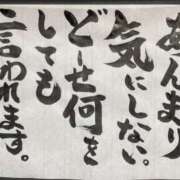 あんまり
気にしない。
どーせ何を
しても
言われます。